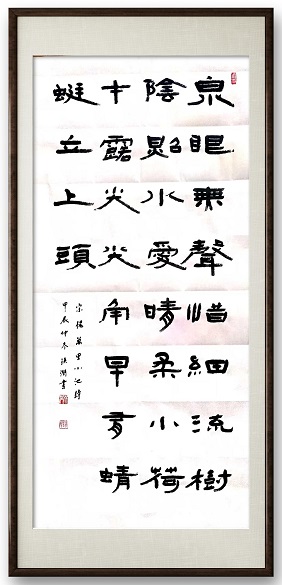 泉眼無聲惜細流樹
陰照水愛晴柔小荷
才露尖尖角早有蜻
蜓立上頭
宋楊萬里小池詩
甲辰仲冬洪書